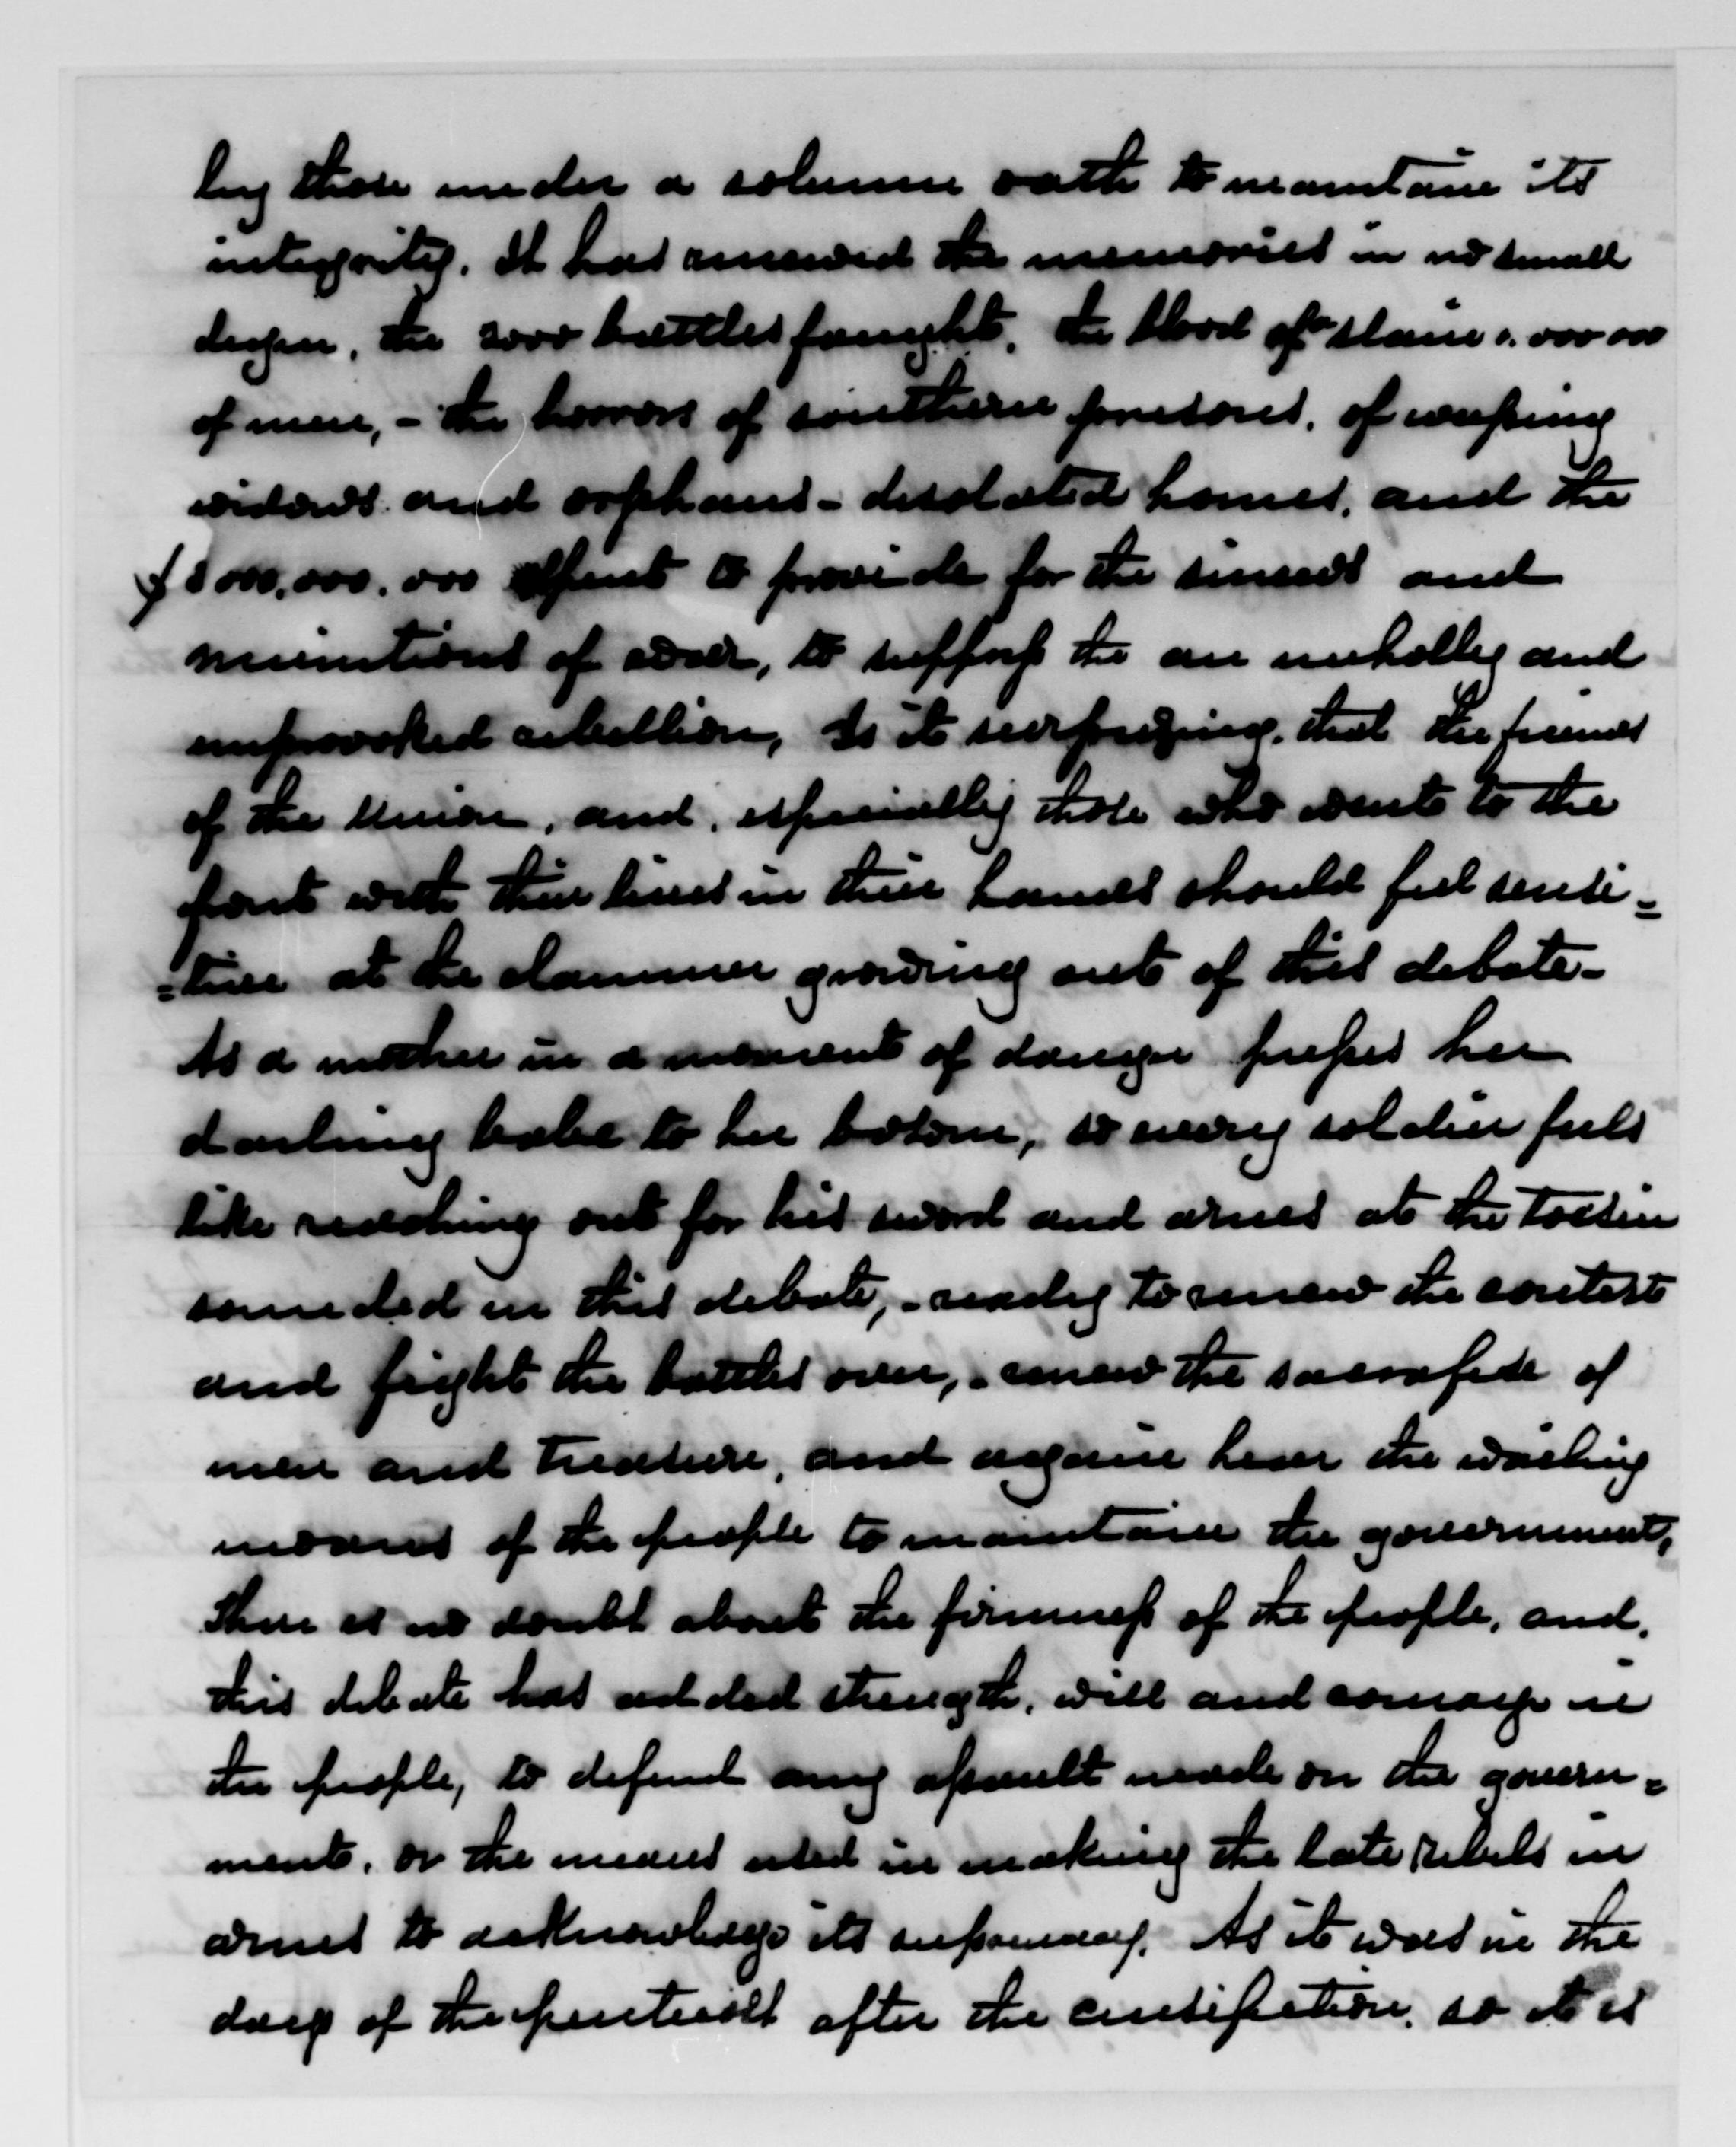 by those under a solemn oath to maintain its
integrity. It has renewed the memories in no small
degree, the 2000 battles fought, the blood of slain 1.000 000
of men, - the horrors of southern prisons, of weeping
widows and orphans - desolated homes, and the
$8000,000,000 spent to provide for the sinews and
munitions of war, to suppress the an unholly and
unprovoked rebellion, Is it surprizing, that the friends
of the Union, and, especially those who went to the
front with their lives in their hands should feel sensi=
=tive at the clammer growing out of this debate-
As a mother in a moment of danger presses her
darling babe to her bosom, so every soldier feels
like reaching out for his sword and arms at the tocsin
sounded in this debate, - ready to renew the contest
and fight the battles over, - renew the sacrafice of
men and treasure, and again hear the wailing
moans of the people to maintain the government,
There is no doubt about the firmness of the people, and,
this debate has added strength, will and courage in
the people, to defend any assault made on the govern=
ment, or the means used in making the late Rebels in
arms to acknowledge its supremacy. As it was in the
days of the penticost after the crusifiction, so it is